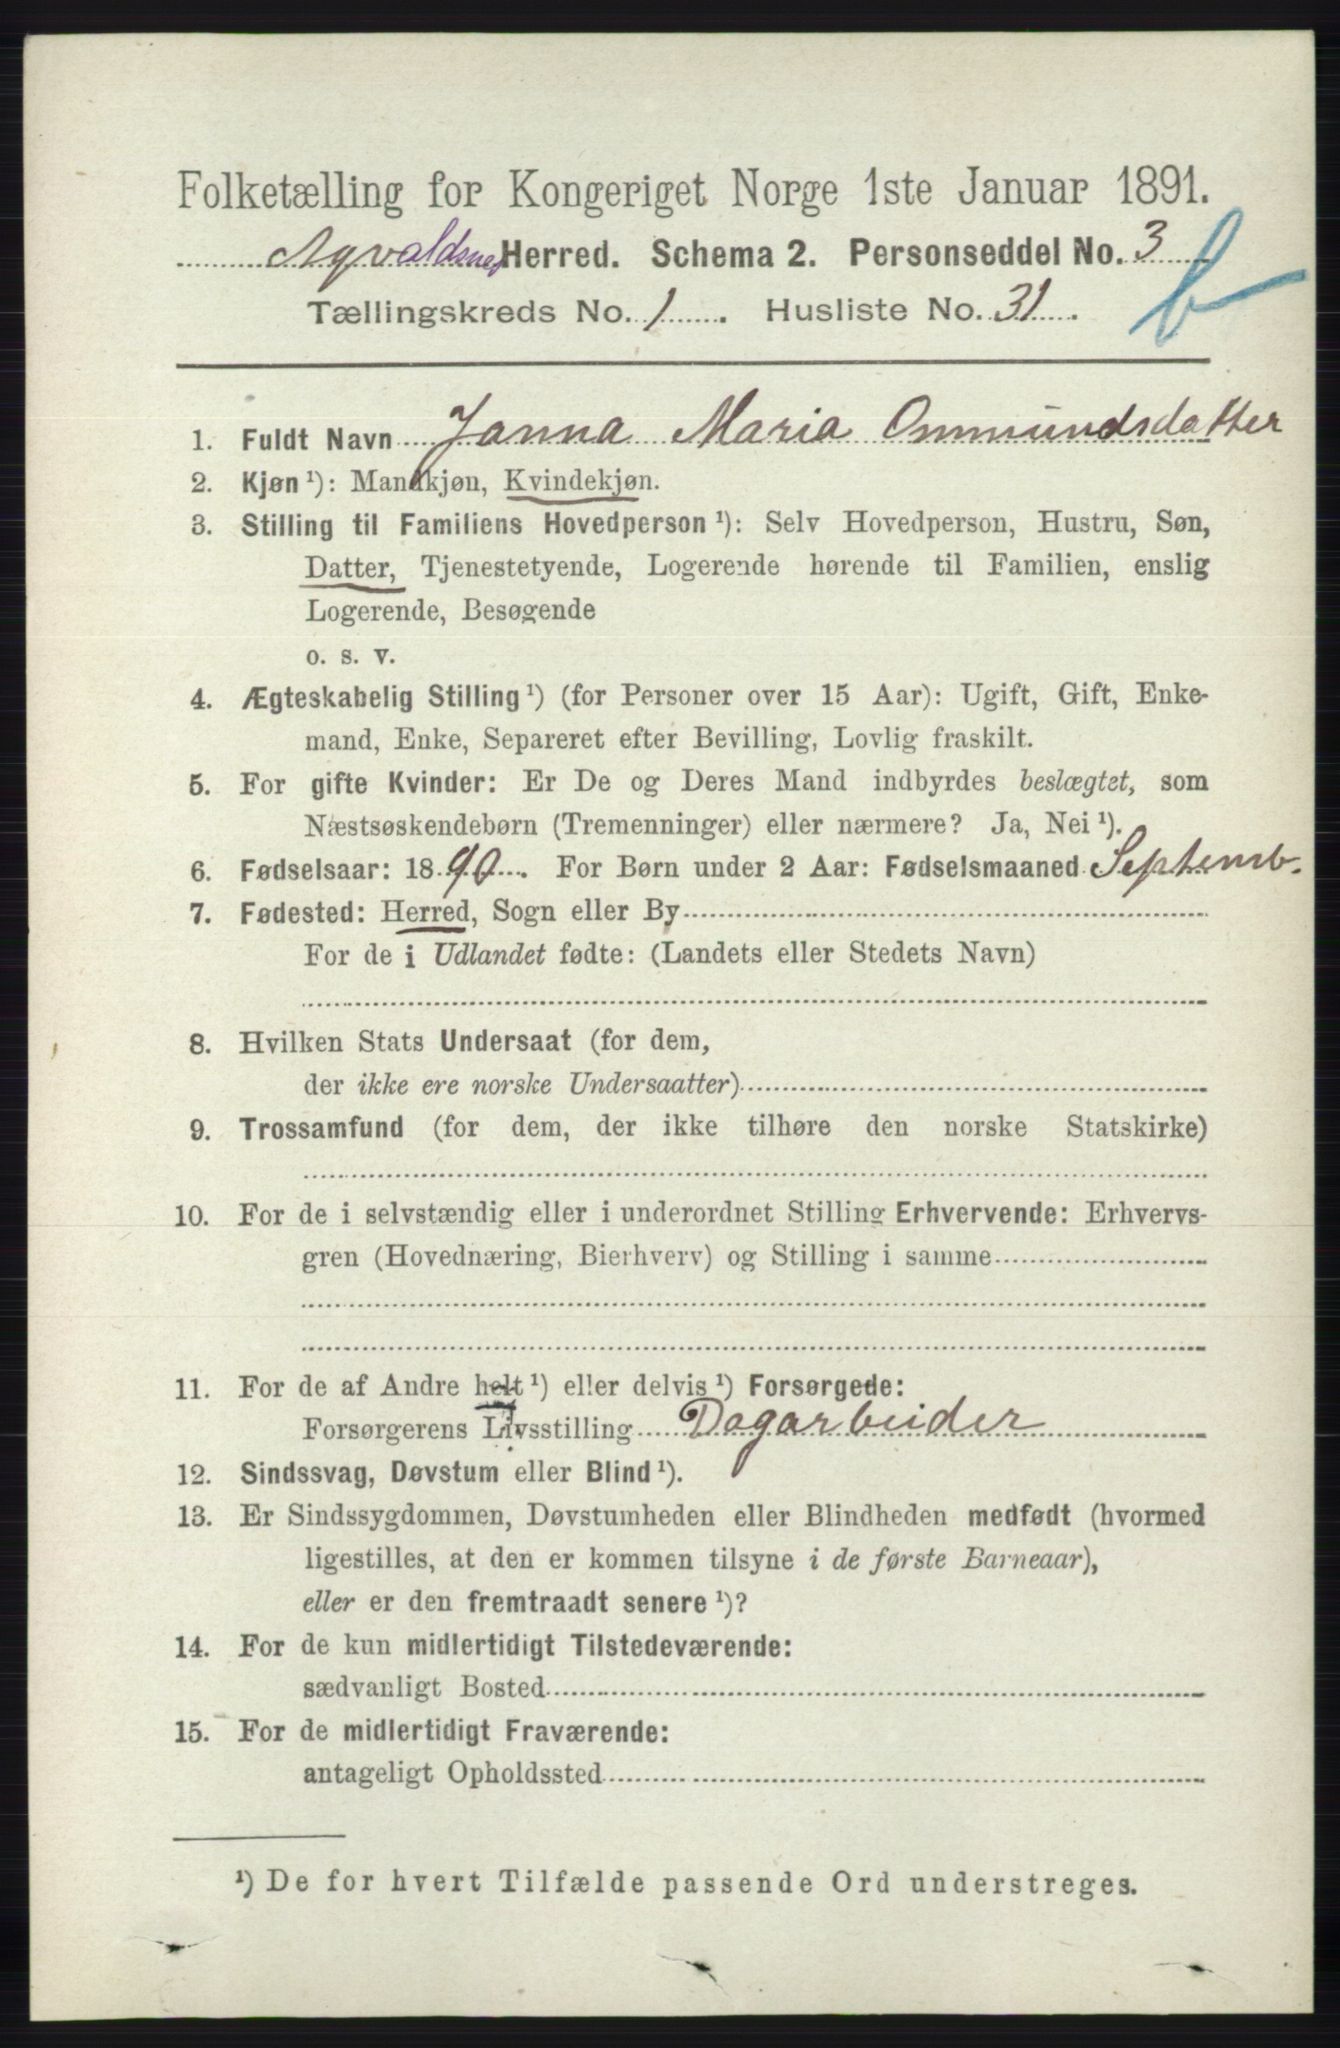 Folketælling for Kongeriget Norge 1ste Januar 1891.
Agvaldsnes Herred. Schema 2. Personseddel No. 3
Tællingskreds No. 1. Husliste No. 31.
b
1. Fuldt Navn Janna Maria Ommundsdatter
2. Kjøn ¹): Mandkjøn, Kvindekjøn.
3. Stilling til Familiens Hovedperson ¹): Selv Hovedperson, Hustru, Søn,
Datter, Tjenestetyende, Logerende hørende til Familien, enslig
Logerende, Besøgende
o. s. v.
4. Ægteskabelig Stilling ¹) (for Personer over 15 Aar): Ugift, Gift, Enke-
mand, Enke, Separeret efter Bevilling, Lovlig fraskilt.
5. For gifte Kvinder: Er De og Deres Mand indbyrdes beslægtet, som
Næstsøskendebørn (Tremenninger) eller nærmere? Ja, Nei ¹).
6. Fødselsaar: 1890. For Børn under 2 Aar: Fødselsmaaned Septemb.
7. Fødested: Herred, Sogn eller By
For de i Udlandet fødte: (Landets eller Stedets Navn)
8. Hvilken Stats Undersaat (for dem,
der ikke ere norske Undersaatter)
9. Trossamfund (for dem, der ikke tilhøre den norske Statskirke)
10. For de i selvstændig eller i underordnet Stilling Erhvervende: Erhvervs-
gren (Hovednæring, Bierhverv) og Stilling i samme
11. For de af Andre helt ¹) eller delvis ¹) Forsørgede:
Forsørgerens Livsstilling Dagarbeider
12. Sindssvag, Døvstum eller Blind ¹).
13. Er Sindssygdommen, Døvstumheden eller Blindheden medfødt (hvormed
ligestilles, at den er kommen tilsyne i de første Barneaar),
eller er den fremtraadt senere ¹)?
14. For de kun midlertidigt Tilstedeværende:
sædvanligt Bosted
15. For de midlertidigt Fraværende:
antageligt Opholdssted
¹) De for hvert Tilfælde passende Ord understreges.